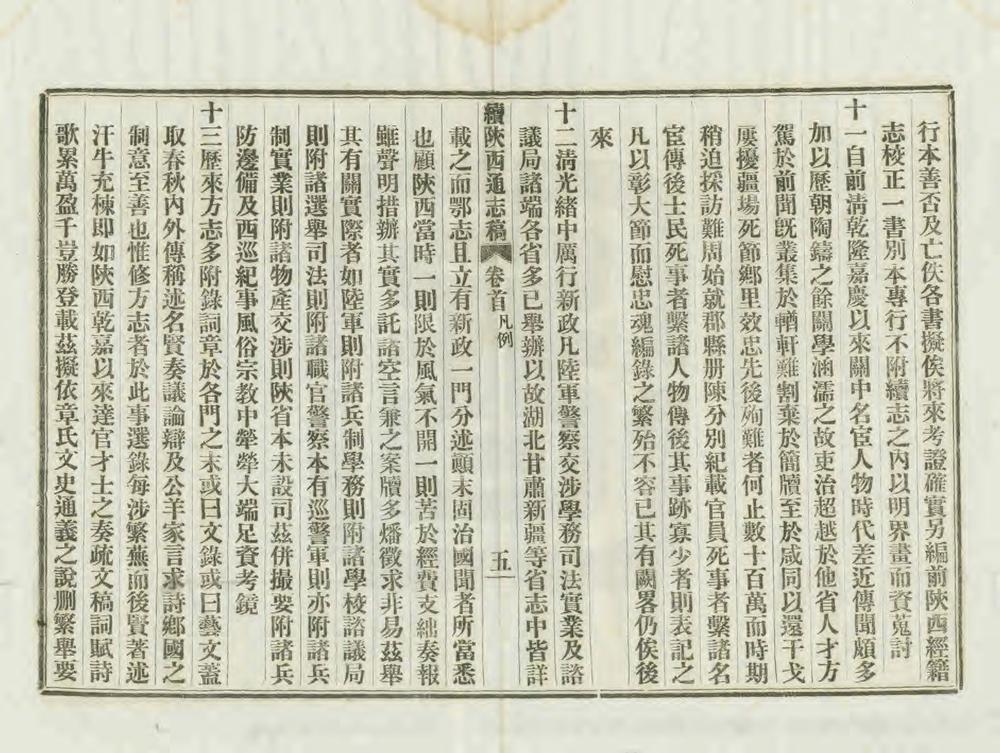 行本善否及亡佚各書擬俟將來考證確實另編前陝西經籍
志校正一書別本專行不附續志之內以明界畫而資蒐討
十一自前淸乾隆嘉慶以來關中名宦人物時代差近傳聞頗多
加以歷朝陶鑄之餘關學涵濡之故吏治超越於他省人才方
駕於前聞旣叢集於輶軒難割棄於簡牘至於咸同以還干戈
屢擾疆場死節鄕里效忠先後殉難者何止數十百萬而時期
稍迫採訪難周始就郡縣册陳分別紀載官員死事者繫諸名
宦傳後士民死事者繫諸人物傳後其事跡寡少者則表記之
凡以彰大節而慰忠魂編錄之繁殆不容已其有闕畧仍俟後
來
十二淸光緖中厲行新政凡陸軍警察交涉學務司法實業及諮
議局諸端各省多已舉辦以故湖北甘肅新疆等省志中皆詳
續陝西通志稿 卷首 凡例 五
載之而鄂志且立有新政一門分述顚末固治國聞者所當悉
也顧陝西當時一則限於風氣不開一則苦於經費支絀奏報
雖聲明措辦其實多託諸空言兼之案牘多燔徵求非易茲舉
其有關實際者如陸軍則附諸兵制學務則附諸學校諮議局
則附諸選舉司法則附諸職官警察本有巡警軍則亦附諸兵
制實業則附諸物產交涉則陝省本未設司茲併撮要附諸兵
防邊備及西巡紀事風俗宗敎中犖犖大端足資考鏡
十三歷來方志多附錄詞章於各門之末或曰文錄或曰藝文蓋
取春秋內外傳稱述名賢奏議論辯及公羊家言求詩鄕國之
制意至善也惟修方志者於此事選錄每涉繁蕪而後賢著述
汗牛充棟即如陝西乾嘉以來達官才士之奏疏文稿詞賦詩
歌累萬盈千豈勝登載茲擬依章氏文史通義之說刪繁舉要